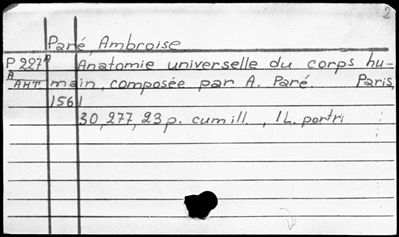 2
Paré, Ambroise
P 227 A Anatomie universelle du corps hu-
A AHT main, composée par A. Paré. Paris,
1561
30, 277, 23 p. cum ill. , 1 L. portr.